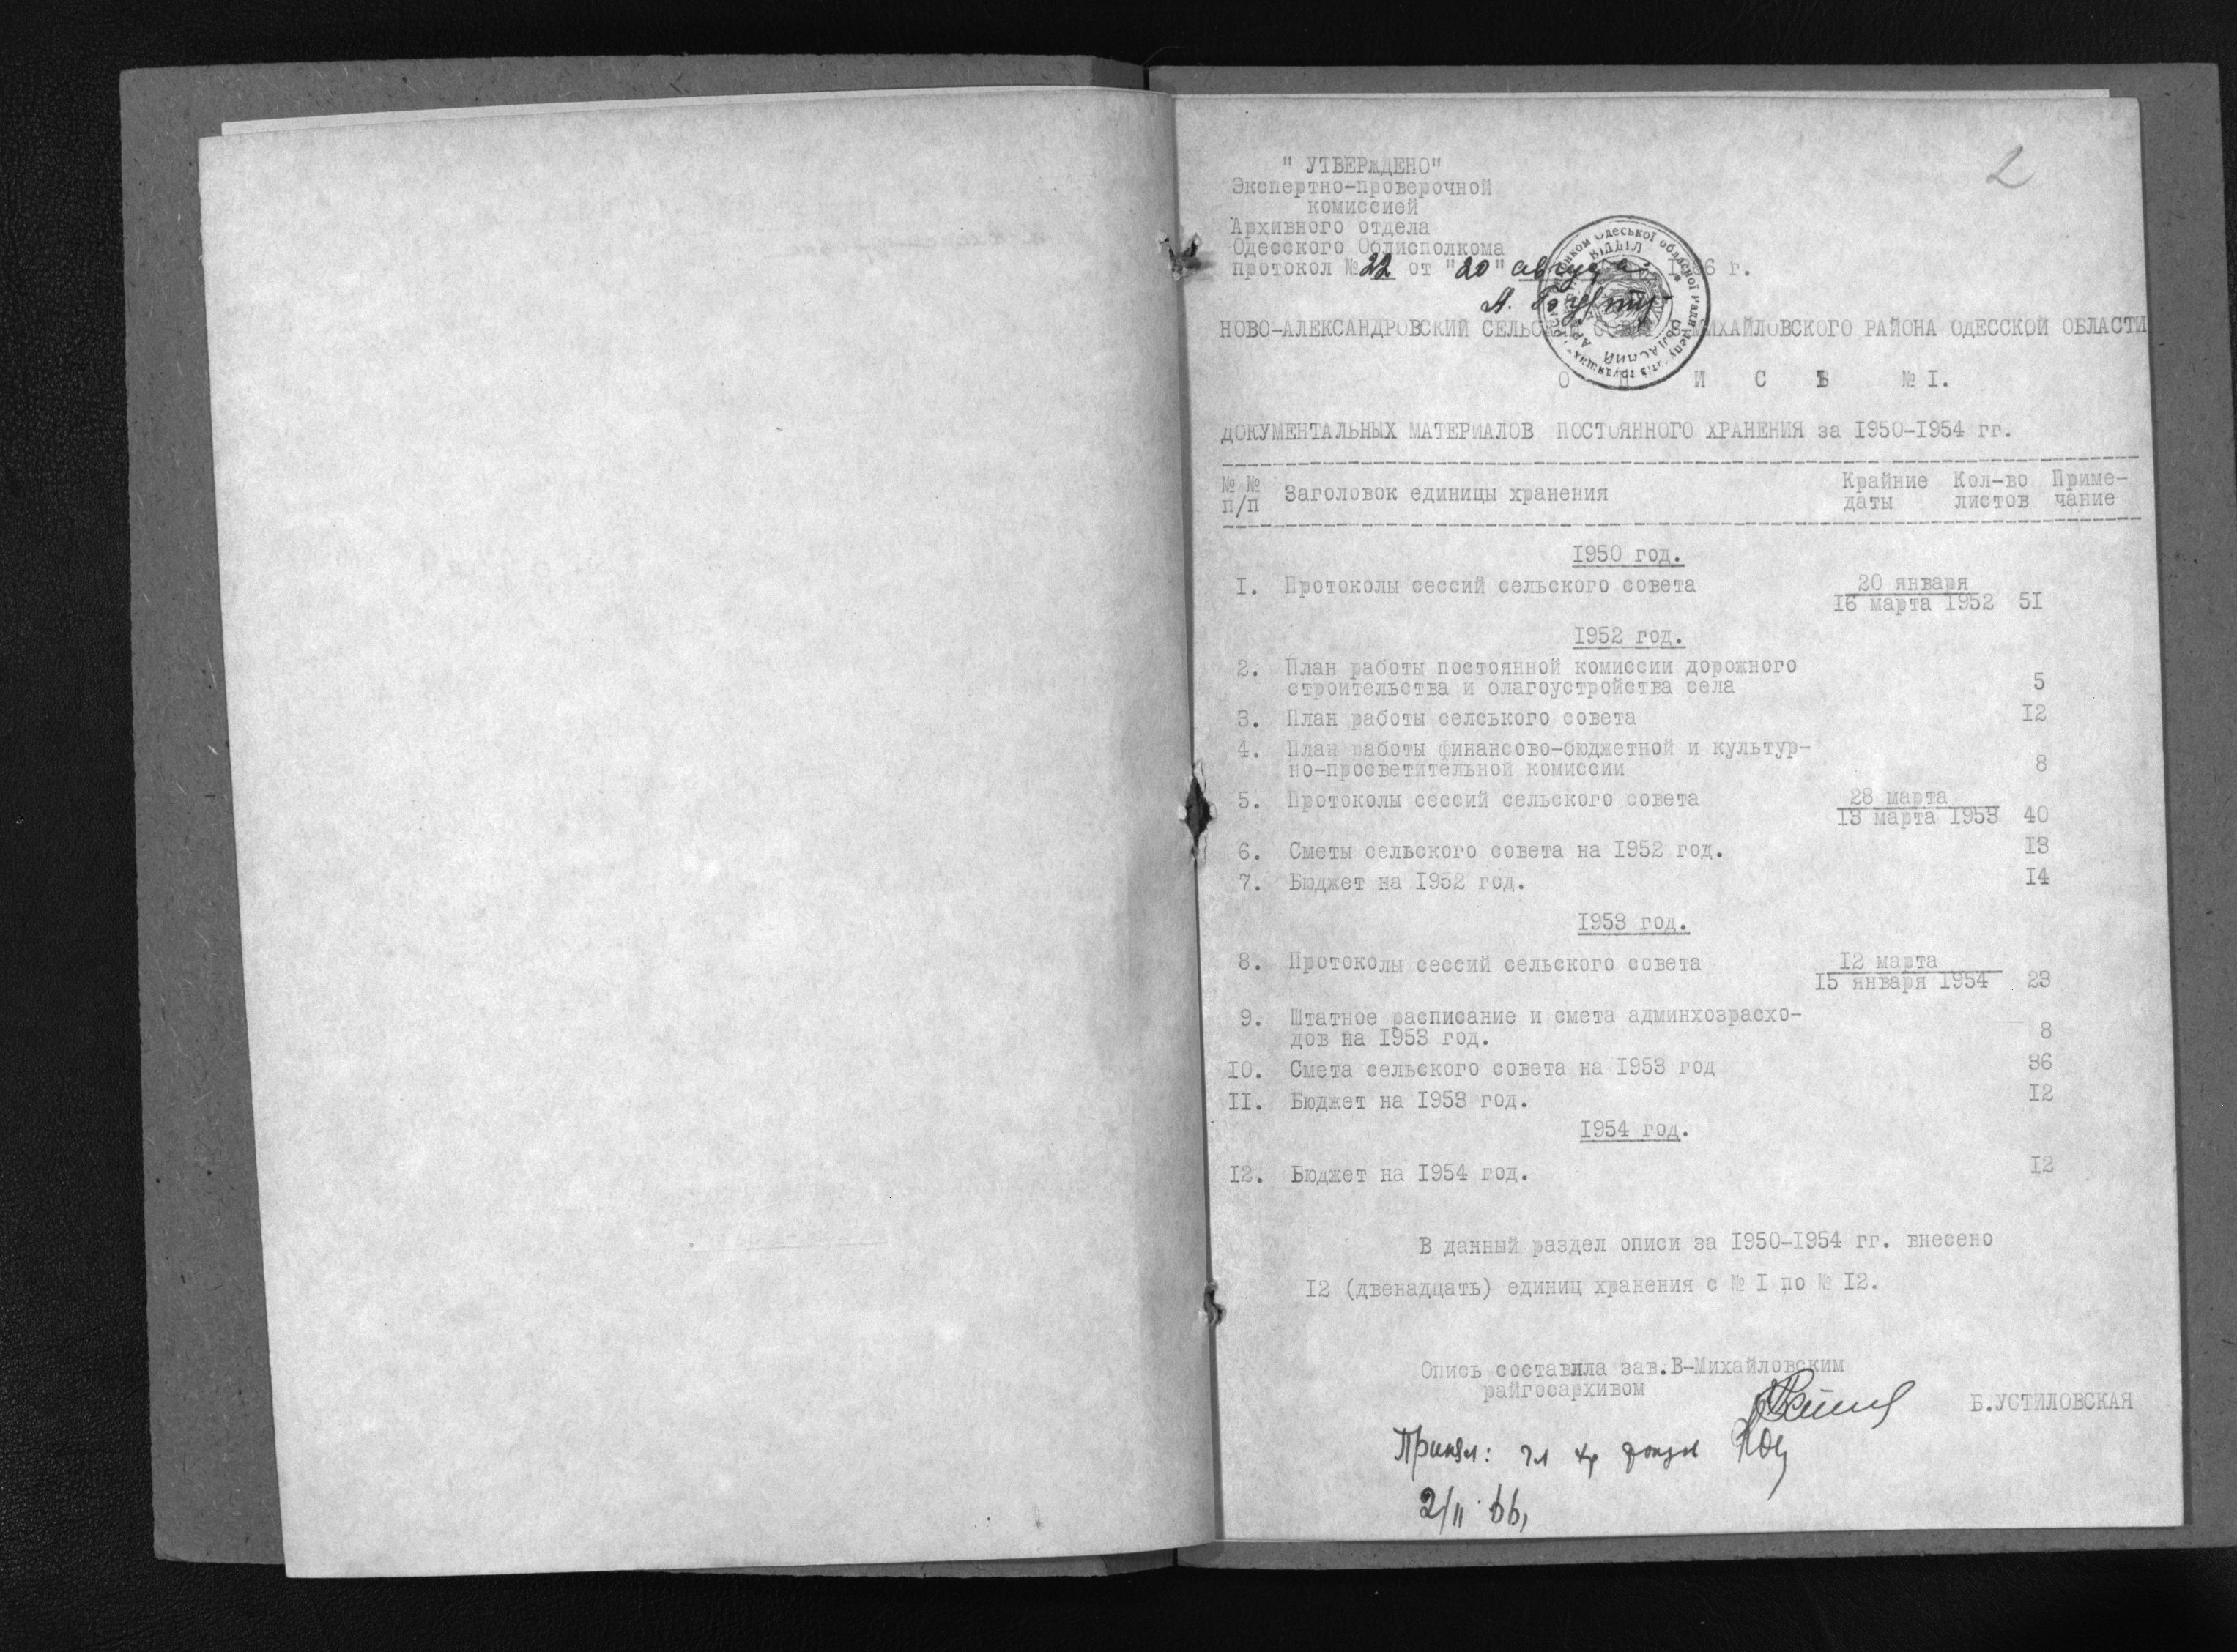 2
" УТВЕРЖДЕНО"
Экспертно-проверочной
комиссией
Архивного отдела
Одесского Облисполкома
протокол № 22 от "20" августа г.
НОВО-АЛЕКСАНДРОВСКИЙ МИХАЙЛОВСКОГО РАЙОНА ОДЕССКОЙ ОБЛАСТИ
О П И С Ь № I.
ДОКУМЕНТАЛЬНЫХ МАТЕРИАЛОВ ПОСТОЯННОГО ХРАНЕНИЯ за I950-I954 гг.
№ № п/п Заголовок единицы хранения Крайние даты Кол-во листов Приме-чание
I950 год.
I. Протоколы сессий сельского совета 20 января 5I
I6 марта I952
I952 год.
2. План работы постоянной комиссии дорожного
строительства и благоустройства села 5
3. План работы селського совета I2
4. План работы финансово-бюджетной и культур-
но-просветительной комиссии 8
5. Протоколы сессий сельского совета 28 марта
I3 марта I953 40
6. Сметы сельского совета на I952 год. I3
7. Бюджет на I952 год. I4
I953 год.
8. Протоколы сессий сельского совета I2 марта
I5 января I954 23
9. Штатное расписание и смета админхозрасхо-
дов на I953 год. 8
I0. Смета сельского совета на I953 год 36
II. Бюджет на I953 год. I2
I954 год.
I2. Бюджет на I954 год. I2
В данный раздел описи за I950-I954 гг. внесено
I2 (двенадцать) единиц хранения с № I по № I2.
Опись составила зав.В-Михайловским
райгосархивом
Б.УСТИЛОВСКАЯ
Принял: гл хр
2/II 66